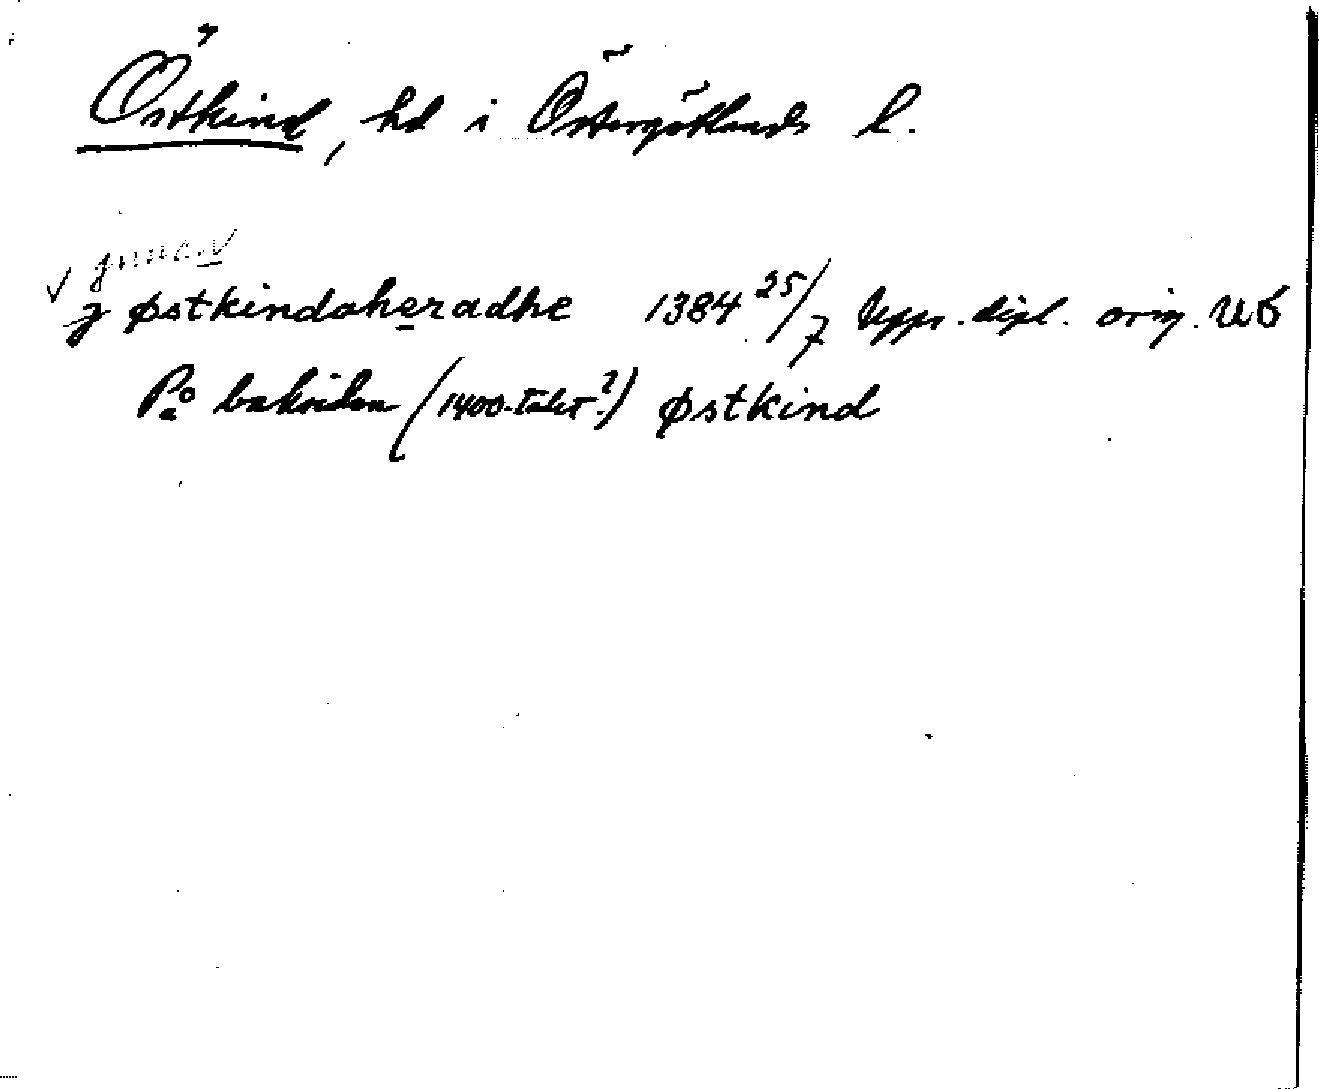 Östkind, hd i Östergötlands l.
innan
j østkindaheradhe 1384 25/7 Upps. dipl. orig. UB
På baksidan (1400-talet?) østkind